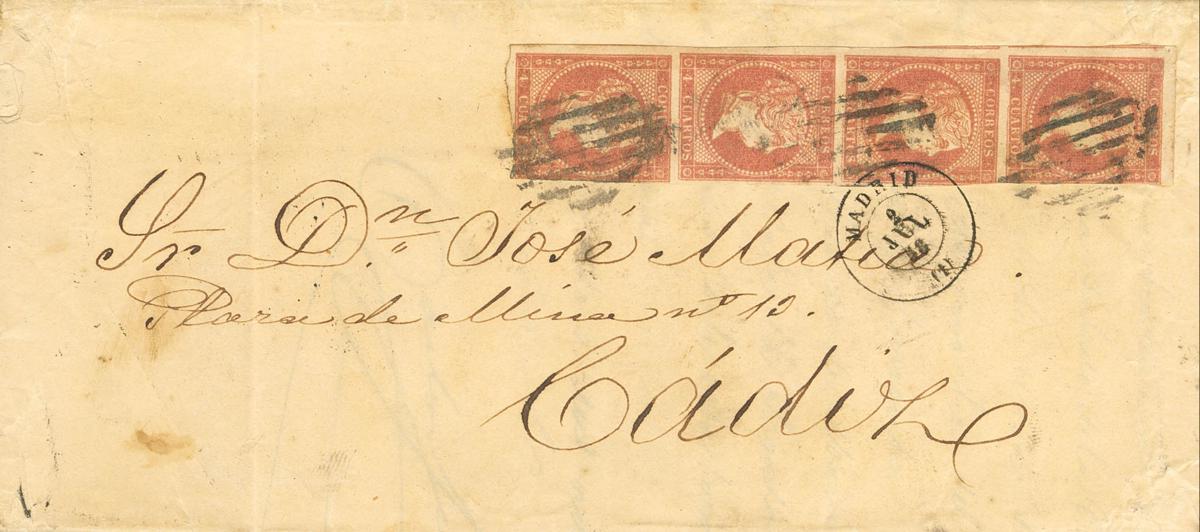 4 CUARTOS CORREOS
4 CUARTOS
4 CUARTOS CORREOS
4 CUARTOS
MADRID
2
JUL
(1)
Sr. Dn. José
Plaza de Mina nº 12.
Cádiz